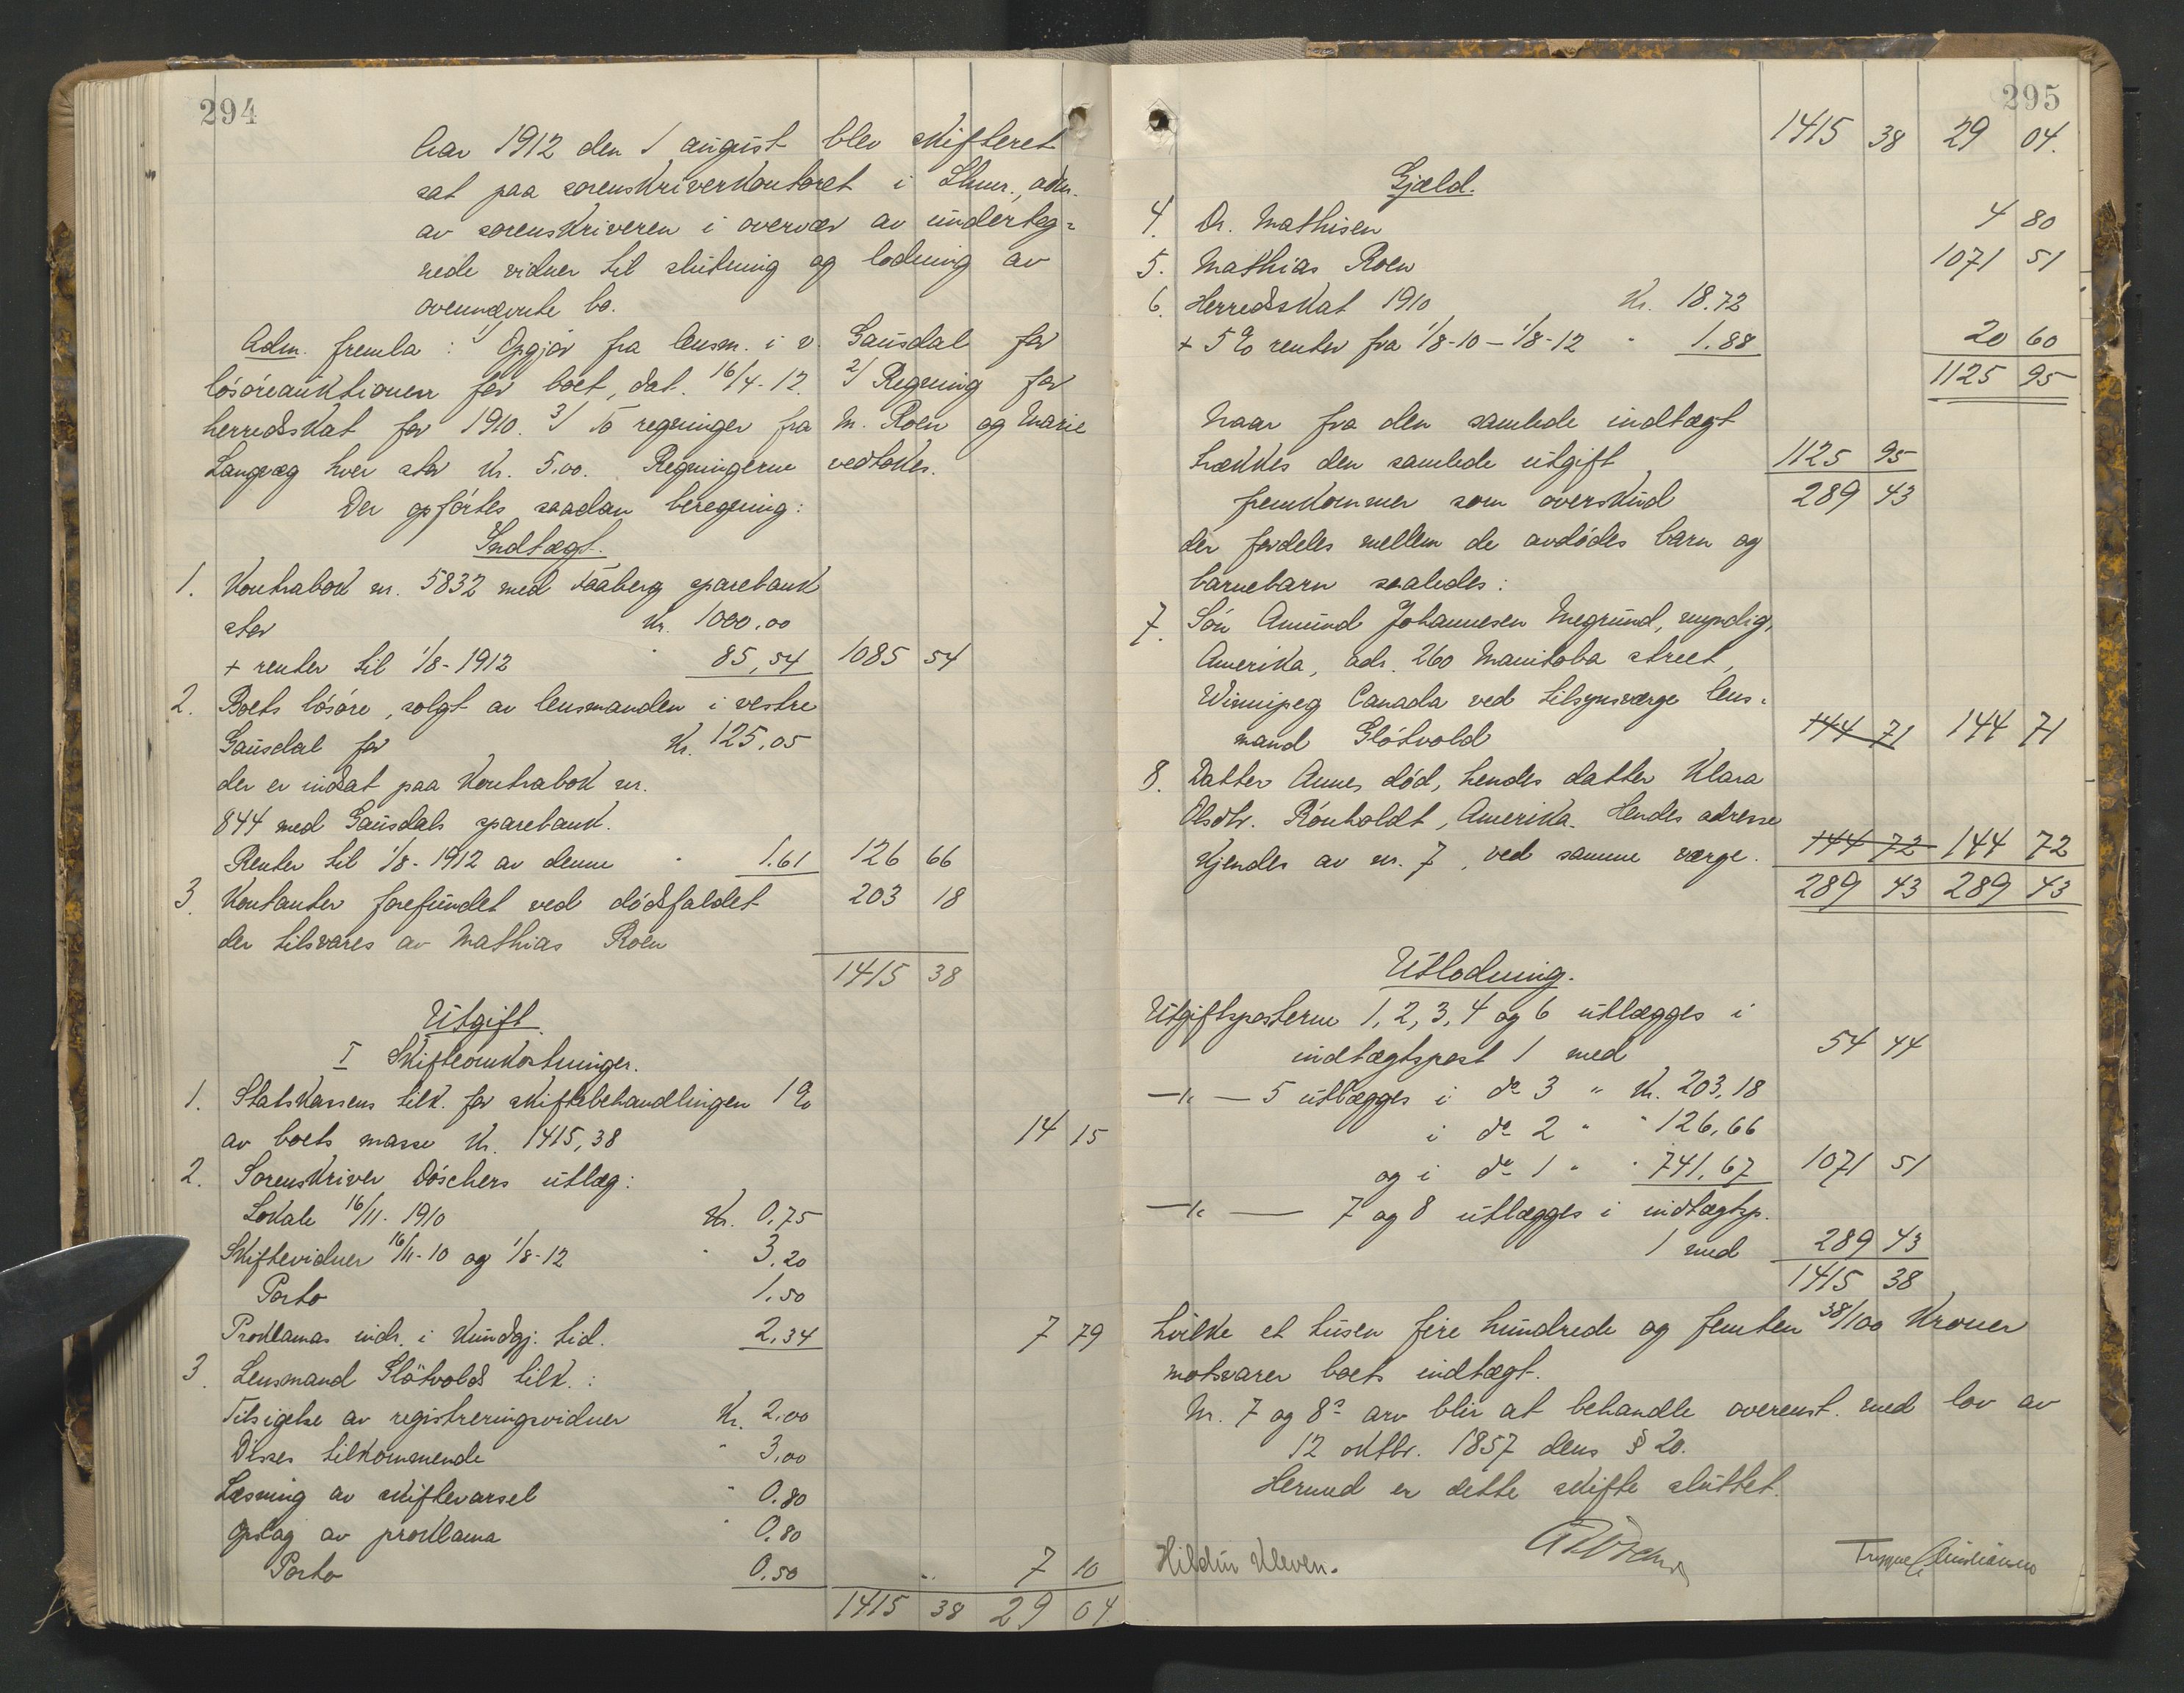 294
Aar 1912 den 1 august blev skifteret
sat paa sorenskriverkontoret i Lhmr., adm.
av sorenskriveren i overvær av underteg-
nede vidner til slutning og lodning av
ovennævnte bo.
Adm. fremla: 1/ Opgjør fra lensm. i v. Gausdal for
løsøreauktionen for boet, dat. 16/4-12. 2/ Regning for
herredsskat for 1910. 3/ To regninger fra M. Roen og Marie
Langvæg hver stor kr. 5,00. Regningerne vedtokes.
Der opførtes saadan beregning:
Indtægt.
1. Kontrabok nr. 5832 med Faaberg sparebank
stor kr. 1000,00
+ renter til 1/8-1912 " 85,54 1085 54
2. Boets løsøre, solgt av lensmanden i vestre
Gausdal for kr. 125,05
der er indsat paa kontrabok nr.
844 med Gausdals sparebank.
Renter til 1/8-1912 av denne " 1.61 126 66
3. Kontanter forefundet ved dødsfaldet 203 18
der tilsvares av Mathias Roen
1415 38
Utgift
I Skifteomkostninger.
1. Statskassens tilk. for skiftebehandlingen 1%
av boets masse kr. 1415,38 14 15
2. Sorenskriver Döschers utlæg:
Lokale 16/11-1910 kr. 0,75
Skiftevidner 16/11-10 og 1/8-12 " 3,20
Porto 1,50
Proklamas indr. i Kundgj. tid. 2,34 7 79
3. Lensmand Fløtvolds tilk.:
Tilsigelse av registreringsvidner kr. 2,00
Disses tilkommende " 3,00
Læsning av skiftevarsel " 0,80
Opslag av proklama " 0,80
Porto 0,50 " 7 10
1415 38 29 04
295
1415 38 29 04.
Gjæld.
4. Dr. Mathisen 4 80
5. Mathias Roen 1071 51
6. Herredsskat 1910 kr. 18.72
+ 5% renter fra 1/8-10 – 1/8-12 " 1.88 20 60
1125 95
Naar fra den samlede indtægt
trækkes den samlede utgift 1125 95
fremkommer som overskud 289 43
der fordeles mellem de avdødes barn og
barnebarn saaledes:
7. Søn Amund Johannesen Megrund, myndig,
Amerika, adr. 260 Manitoba street,
Winnipeg Canada ved tilsynsværge lens-
mand Fløtvold 144 71 144 71
8. Datter Anne, død, hendes datter Klara
Olsdtr. Rönholdt, Amerika. Hendes adresse
kjendes av nr. 7, ved samme værge. 144 72 144 72
289 43 289 43
Utlodning.
Utgiftsposterne 1, 2, 3, 4 og 6 utlægges i
indtægtspost 1 med 54 44
—"— 5 utlægges i do 3 " kr. 203,18
i do 2 " " 126,66
og i do 1 " " 741,67 1071 51
—"— 7 og 8 utlægges i indtægtsp.
1 med 289 43
1415 38
hvilke et tusen fire hundrede og femten 38/100 kroner
motsvarer boets indtægt.
Nr. 7 og 8s arv blir at behandle overenst. med lov av
12 oktbr. 1857 dens § 20.
Hermed er dette skifte sluttet.
Hildur Kleven.